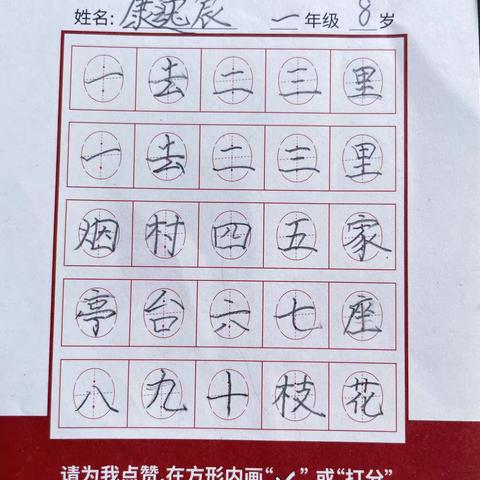 姓名: 康逸辰 一年级 8岁
一去二三里
一去二三里
烟村四五家
亭台六七座
八九十枝花
请为我点赞,在方形内画“✓” 或“打分”